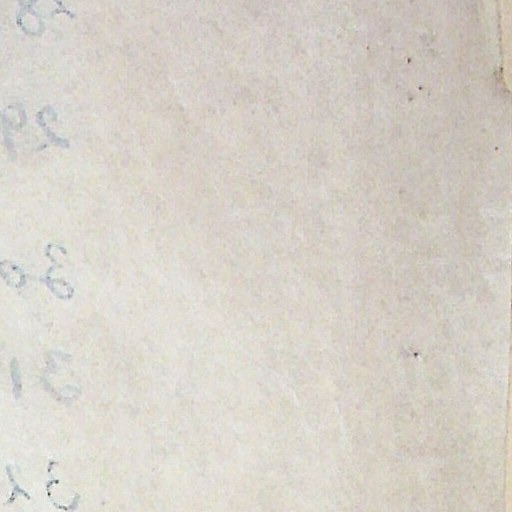 28
29
30
31
32